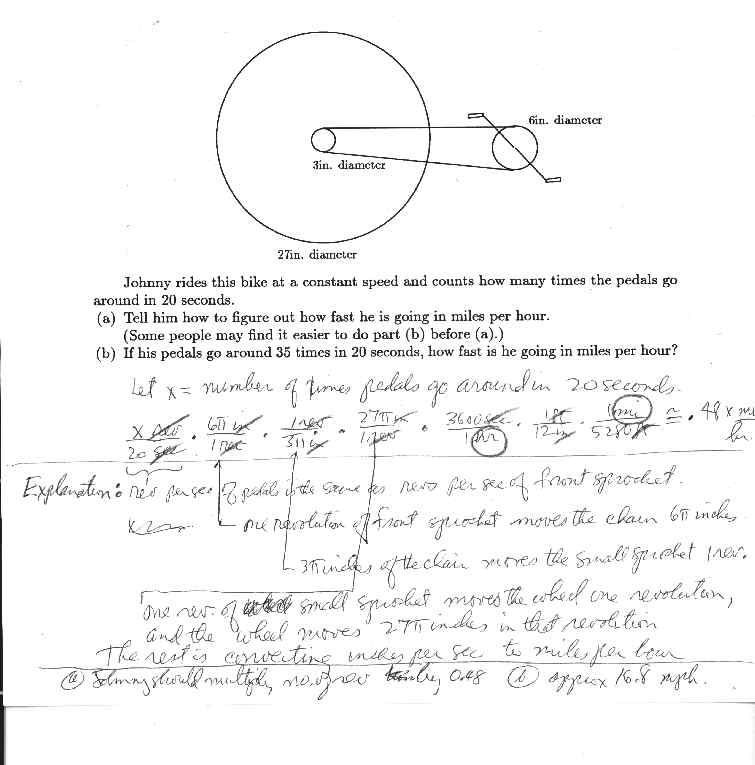 6in. diameter
3in. diameter
27in. diameter
Johnny rides this bike at a constant speed and counts how many times the pedals go
around in 20 seconds.
(a) Tell him how to figure out how fast he is going in miles per hour.
(Some people may find it easier to do part (b) before (a).)
(b) If his pedals go around 35 times in 20 seconds, how fast is he going in miles per hour?
Let x = number of times pedals go around in 20 seconds.
x rev/20 sec · 6π in/1 rev · 1 rev/3π in · 27π in/1 rev · 3600 sec/1 hr · 1 ft/12 in · 1 mi/5280 ft ≅ .48 x mi/hr
Explanation: rev per sec of pedals is the same as revs per sec of front sprocket.
one revolution of front sprocket moves the chain 6π inches.
3π inches of the chain moves the small sprocket 1 rev.
One rev. of small sprocket moves the wheel one revolution,
and the wheel moves 27π inches in that revolution
The rest is converting inches per sec to miles per hour
(a) Johnny should multiply no. of rev by 0.48 (b) approx 16.8 mph.